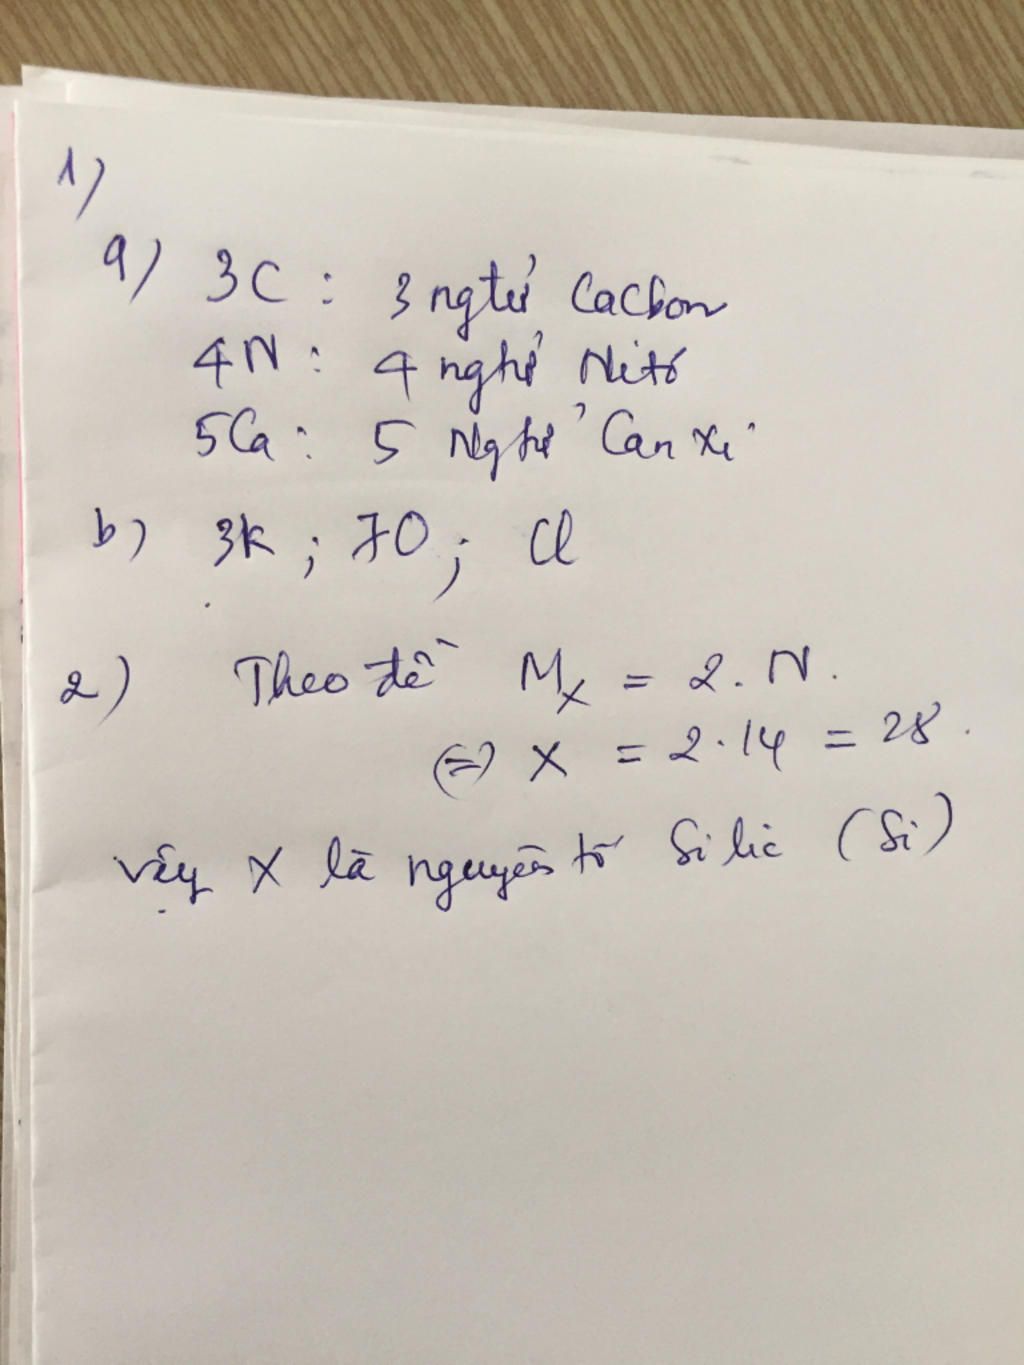 1)
a) 3C : 3 ngtử Cacbon
4N : 4 ngtử Nitơ
5Ca : 5 Ngtử Canxi
b) 3K ; 7O ; Cl
2) Theo đề Mx = 2. N.
(=) X = 2.14 = 28.
vậy X là nguyên tố Silic (Si)